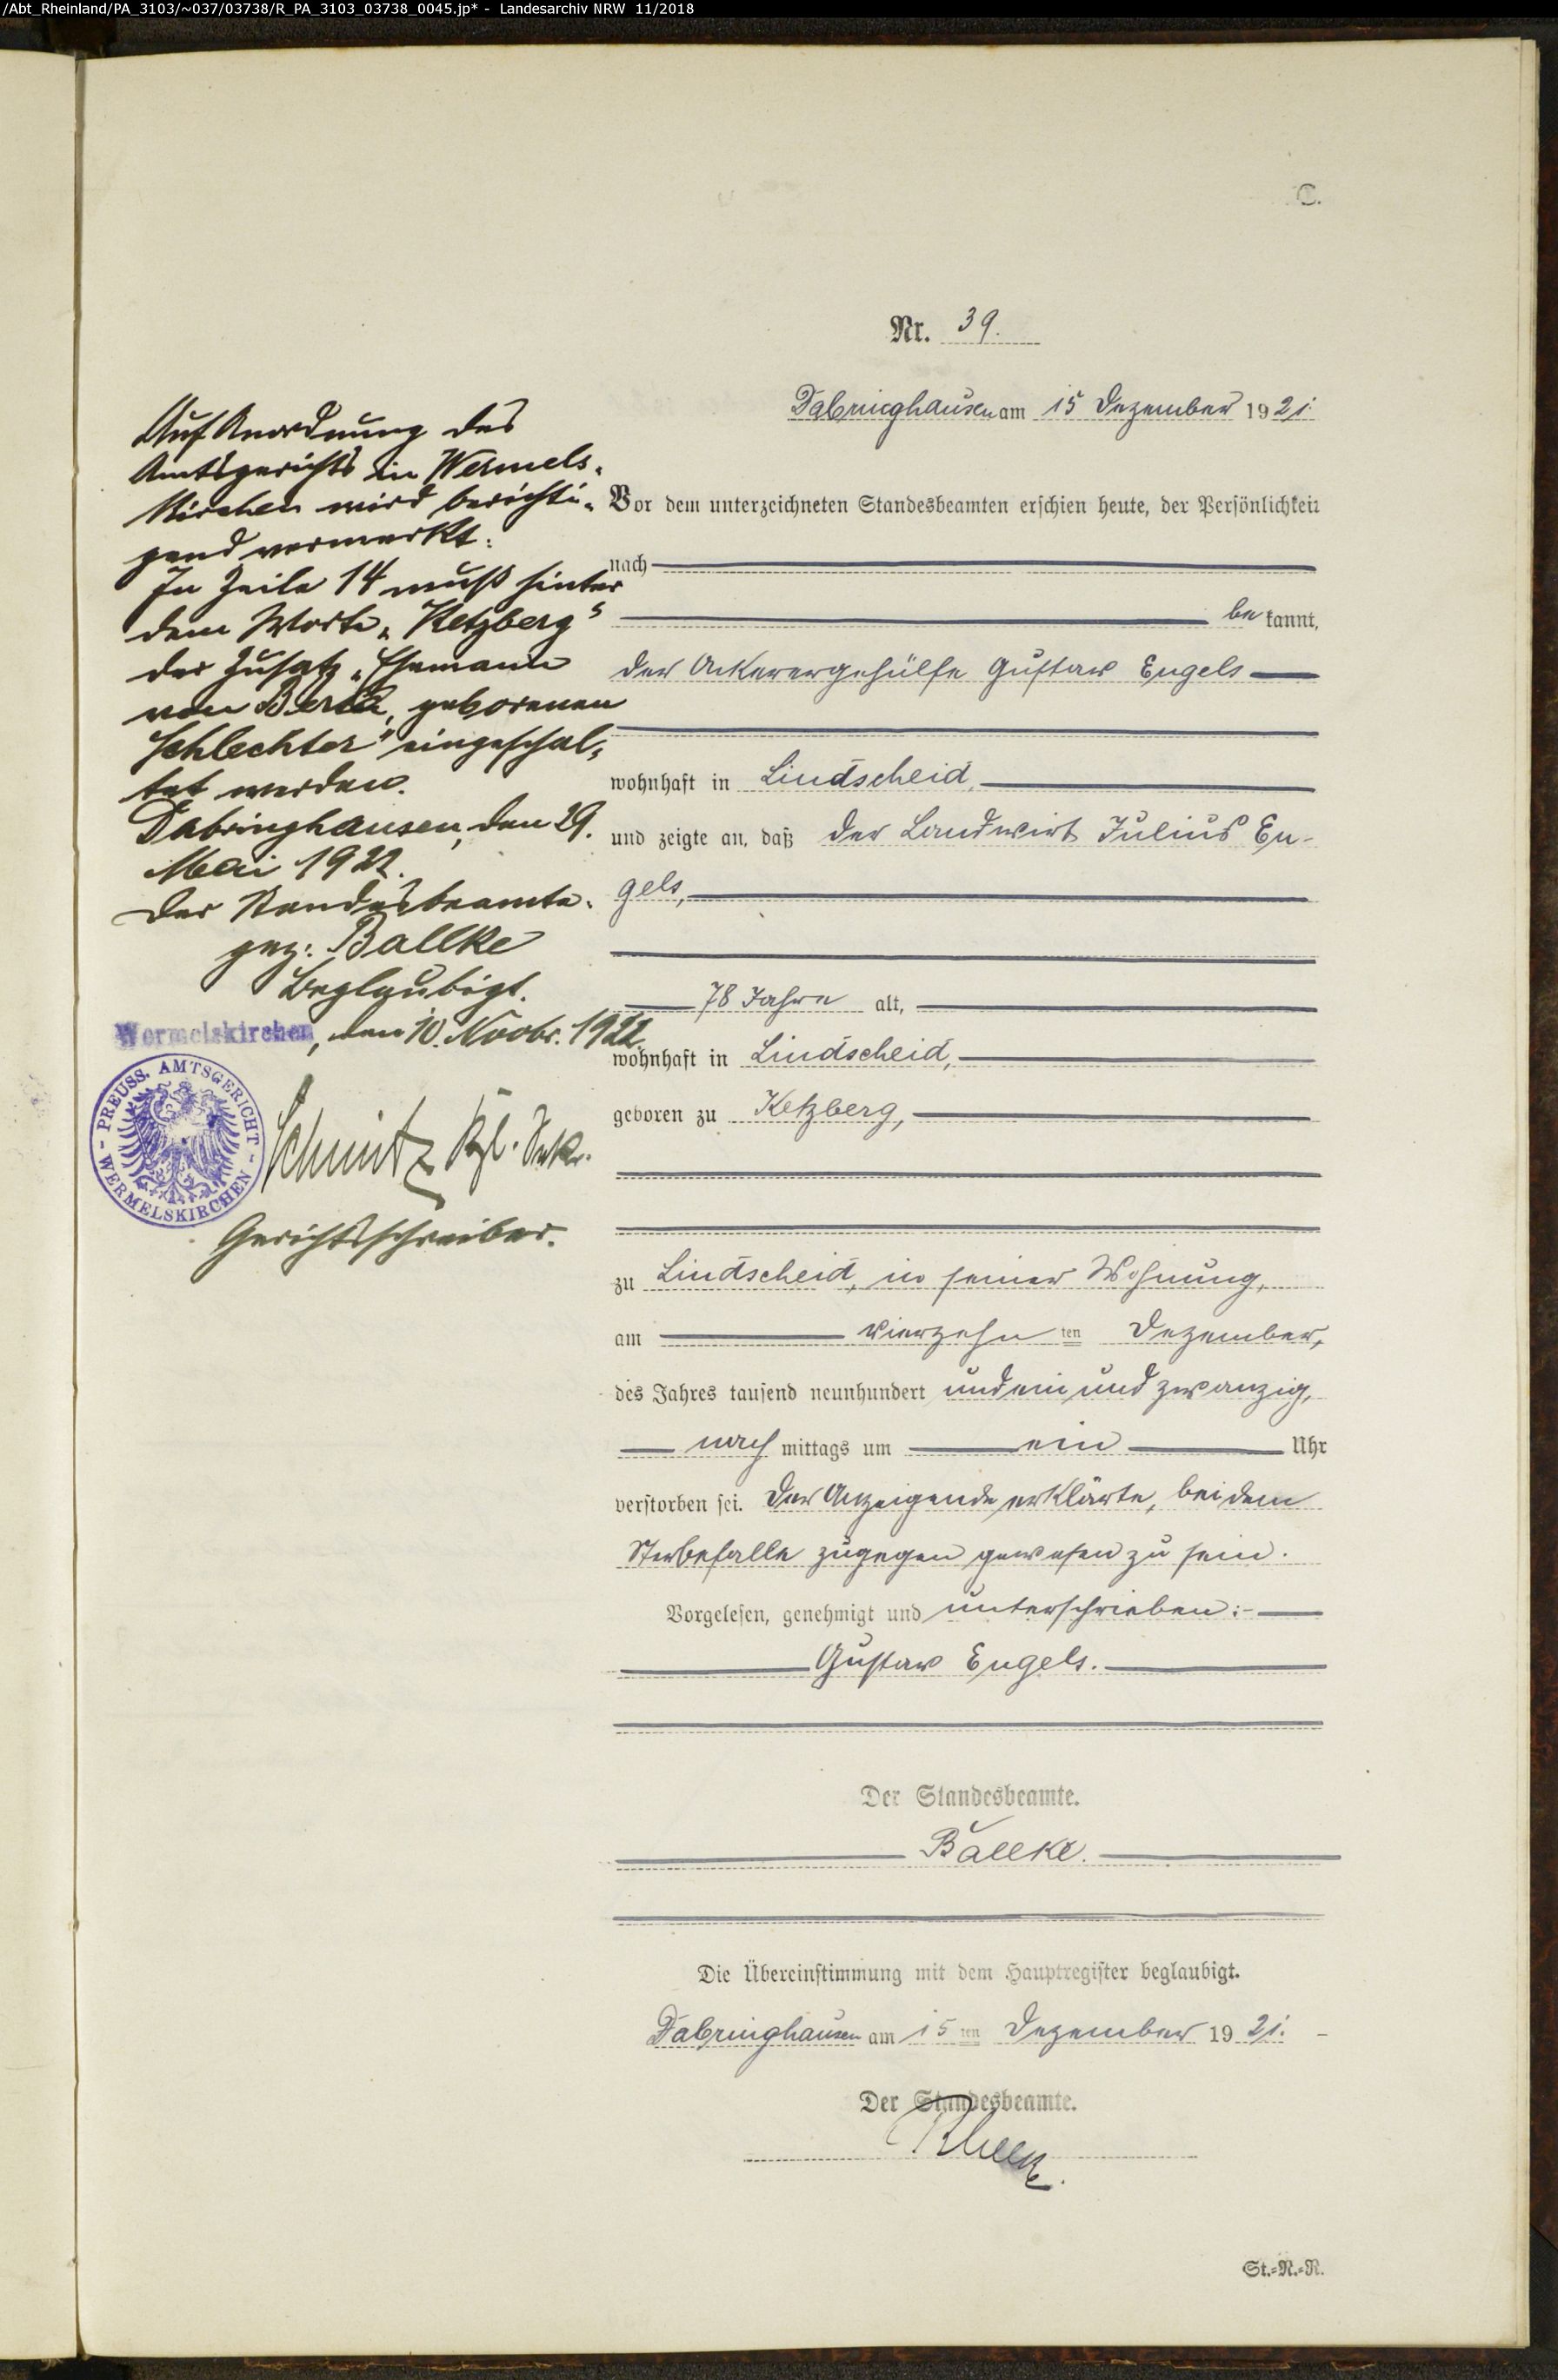 /Abt_Rheinland/PA_3103/~037/03738/R_PA_3103_03738_0045.jp* - Landesarchiv NRW 11/2018
C.
Nr. 39.
Dabringhausen am 15 Dezember 1921.
Vor dem unterzeichneten Standesbeamten erschien heute, der Persönlichkeit
nach
bekannt,
der Ackerergehülfe Gustav Engels
wohnhaft in Lindscheid,
und zeigte an, daß der Landwirt Julius En-
gels,
78 Jahre alt,
wohnhaft in Lindscheid,
geboren zu Ketzberg,
zu Lindscheid, in seiner Wohnung,
am vierzehnten Dezember,
des Jahres tausend neunhundert und ein und zwanzig,
nachmittags um ein Uhr
verstorben sei. Der Anzeigende erklärte, bei dem
Sterbefalle zugegen gewesen zu sein.
Vorgelesen, genehmigt und unterschrieben:-
Gustav Engels.
Der Standesbeamte.
Ballke.
Die Übereinstimmung mit dem Hauptregister beglaubigt.
Dabringhausen am 15ten Dezember 1921.
Der Standesbeamte.
Ballke.
St.-N.-R.
Auf Anordnung des
Amtsgerichts in Wermels-
kirchen wird berichti-
gend vermerkt:
In Zeile 14 muß hinter
dem Worte „Ketzberg"
der Zusatz „Ehemann
von Berta, geborenen
Schlechter" eingeschal-
tet werden.
Dabringhausen, den 29.
Mai 1922.
Der Standesbeamte.
gez: Ballke
Beglaubigt.
Wermelskirchen, den 10. Novbr. 1922.
PREUSS. AMTSGERICHT - WERMELSKIRCHEN -
Schmitz Kzl. Sekr.
Gerichtsschreiber.